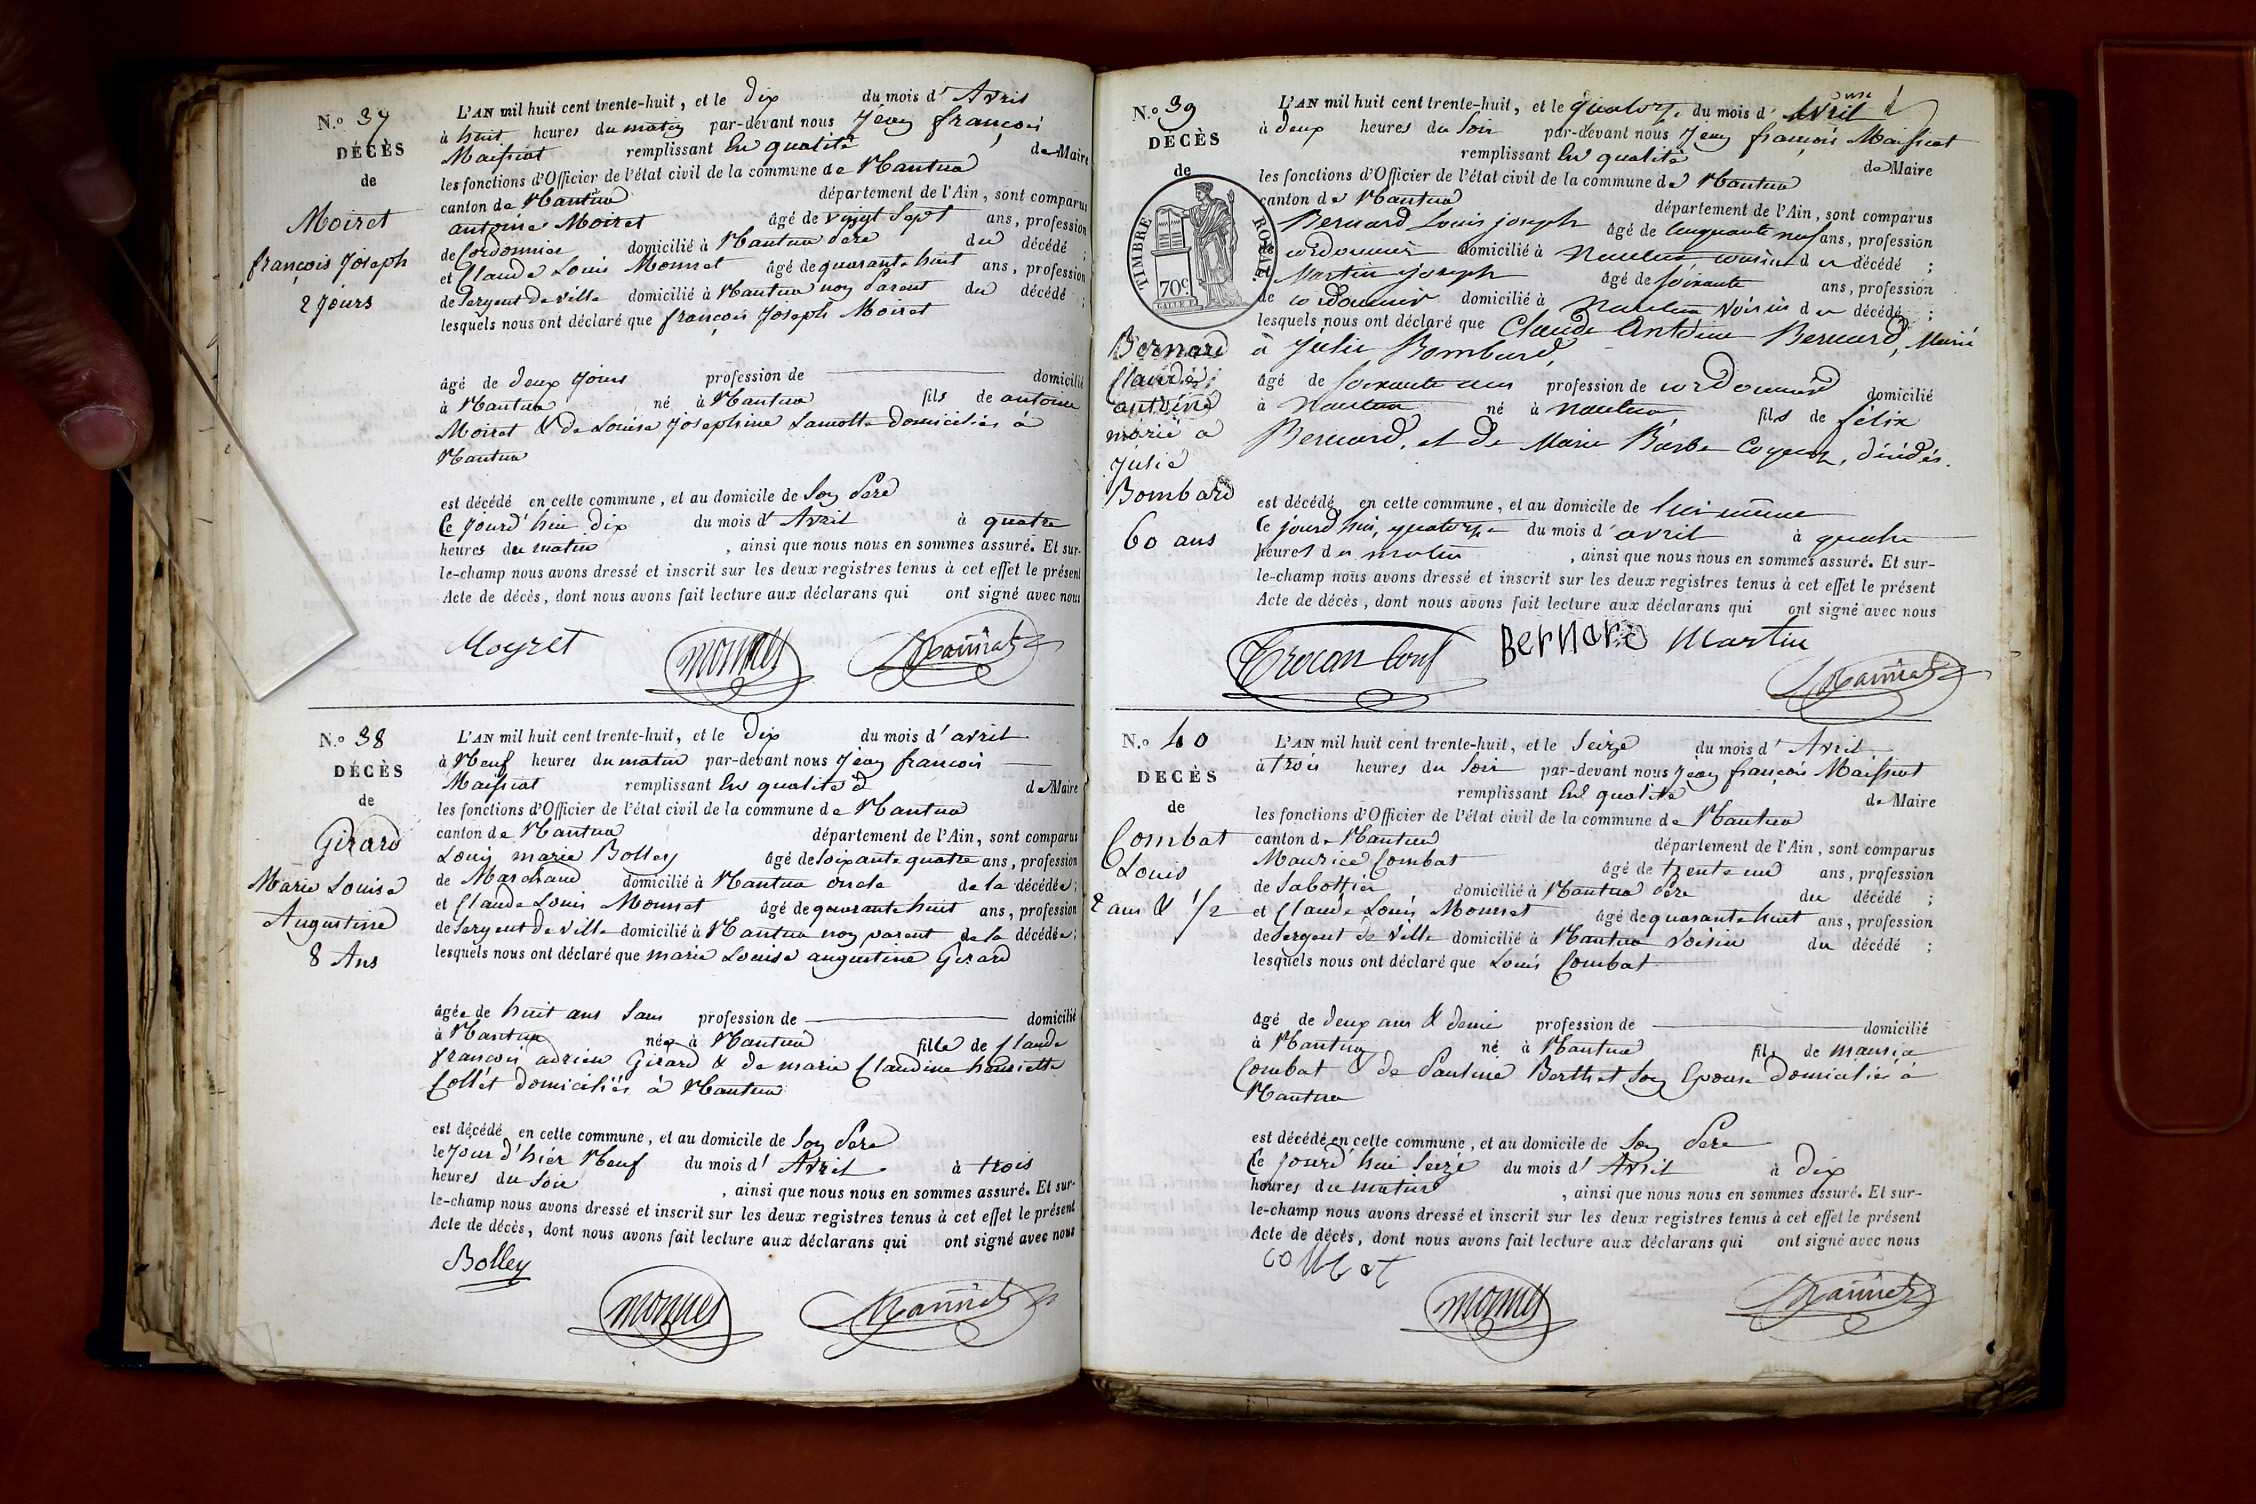 N.º 37
DÉCÈS
de
Moiret
françois Joseph
2 Jours
L'AN mil huit cent trente-huit, et le dix du mois d'Avril
à huit heures du matin par-devant nous Jean françois
Maissiat remplissant En qualité de Maire
les fonctions d'Officier de l'état civil de la commune de Nantua
canton de Nantua département de l'Ain, sont comparus
antoine Moiret âgé de vingt Sept ans, profession
de Cordonnier domicilié à Nantua père du décédé ;
et Claude Louis Monnet âgé de quarante huit ans, profession
de Sergent de ville domicilié à Nantua non parent du décédé ;
lesquels nous ont déclaré que françois Joseph Moiret
âgé de deux Jours profession de domicilié
à Nantua né à Nantua fils de antoine
Moiret & de Louise Josephine Lamotte domiciliés à
Nantua
est décédé en cette commune, et au domicile de Son père
Ce Jourd'hui dix du mois d'Avril à quatre
heures du matin , ainsi que nous nous en sommes assuré. Et sur-
le-champ nous avons dressé et inscrit sur les deux registres tenus à cet effet le présent
Acte de décès, dont nous avons fait lecture aux déclarans qui ont signé avec nous
Moyret Monnet
N.º 38
DÉCÈS
de
Girard
Marie Louise
Augustine
8 Ans
L'AN mil huit cent trente-huit, et le dix du mois d'avril
à Neuf heures du matin par-devant nous Jean francois
Maissiat remplissant En qualité de Maire
les fonctions d'Officier de l'état civil de la commune de Nantua
canton de Nantua département de l'Ain, sont comparus
Louis marie Bolley âgé de soixante quatre ans, profession
de Marchand domicilié à Nantua oncle de la décédée ;
et Claude Louis Monnet âgé de quarante huit ans, profession
de Sergent de ville domicilié à Nantua non parent de la décédée ;
lesquels nous ont déclaré que marie Louise augustine Girard
âgée de huit ans Sans profession de domicilié
à Nantua née à Nantua fille de Claude
françois adrien Girard & de marie Claudine henriette
Collet domiciliés à Nantua
est décédé en cette commune, et au domicile de Son père
le Jour d'hier Neuf du mois d'Avril à trois
heures du Soir , ainsi que nous nous en sommes assuré. Et sur-
le-champ nous avons dressé et inscrit sur les deux registres tenus à cet effet le présent
Acte de décès, dont nous avons fait lecture aux déclarans qui ont signé avec nous
Bolley
Monnet
N.º 39
DÉCÈS
de
TIMBRE ROYAL.
70c
Bernard
Claude
antoine
marié a
Julie
Bombard
60 ans
L'AN mil huit cent trente-huit, et le quatorze du mois d'Avril
à deux heures du Soir par-devant nous Jean françois Maissiat
remplissant En qualité de Maire
les fonctions d'Officier de l'état civil de la commune de Nantua
canton de Nantua département de l'Ain, sont comparus
Bernard Louis joseph âgé de Cinquante neuf ans, profession
de cordonnier domicilié à Nantua cousin du décédé ;
et Martin Joseph âgé de soixante ans, profession
de cordonnier domicilié à Nantua Voisin du décédé ;
lesquels nous ont déclaré que Claude Antoine Bernard, Marié
à Julie Bombard,
âgé de Soixante ans profession de cordonnier domicilié
à Nantua né à Nantua fils de félix
Bernard, et de Marie Barbe décédés.
est décédé en cette commune, et au domicile de lui même
Ce jourd'hui, quatorze du mois d'avril à quatre
heures du matin , ainsi que nous nous en sommes assuré. Et sur-
le-champ nous avons dressé et inscrit sur les deux registres tenus à cet effet le présent
Acte de décès, dont nous avons fait lecture aux déclarans qui ont signé avec nous
Bernard Martin
N.º 40
DÉCÈS
de
Combat
Louis
2 ans & 1/2
L'AN mil huit cent trente-huit, et le Seize du mois d'Avril
à trois heures du Soir par-devant nous Jean françois Maissiat
remplissant En qualité de Maire
les fonctions d'Officier de l'état civil de la commune de Nantua
canton de Nantua département de l'Ain, sont comparus
Maurice Combat âgé de trente un ans, profession
de Sabottier domicilié à Nantua père du décédé ;
et Claude Louis Monnet âgé de quarante huit ans, profession
de Sergent de Ville domicilié à Nantua Voisin du décédé ;
lesquels nous ont déclaré que Louis Combat
âgé de deux ans & demi profession de domicilié
à Nantua né à Nantua fils de maurice
Combat & de Pauline Berthet Son Epouse domiciliés à
Nantua
est décédé en cette commune, et au domicile de Son père
Ce Jourd'hui Seize du mois d'Avril à dix
heures du matin , ainsi que nous nous en sommes assuré. Et sur-
le-champ nous avons dressé et inscrit sur les deux registres tenus à cet effet le présent
Acte de décès, dont nous avons fait lecture aux déclarans qui ont signé avec nous
combat
Monnet